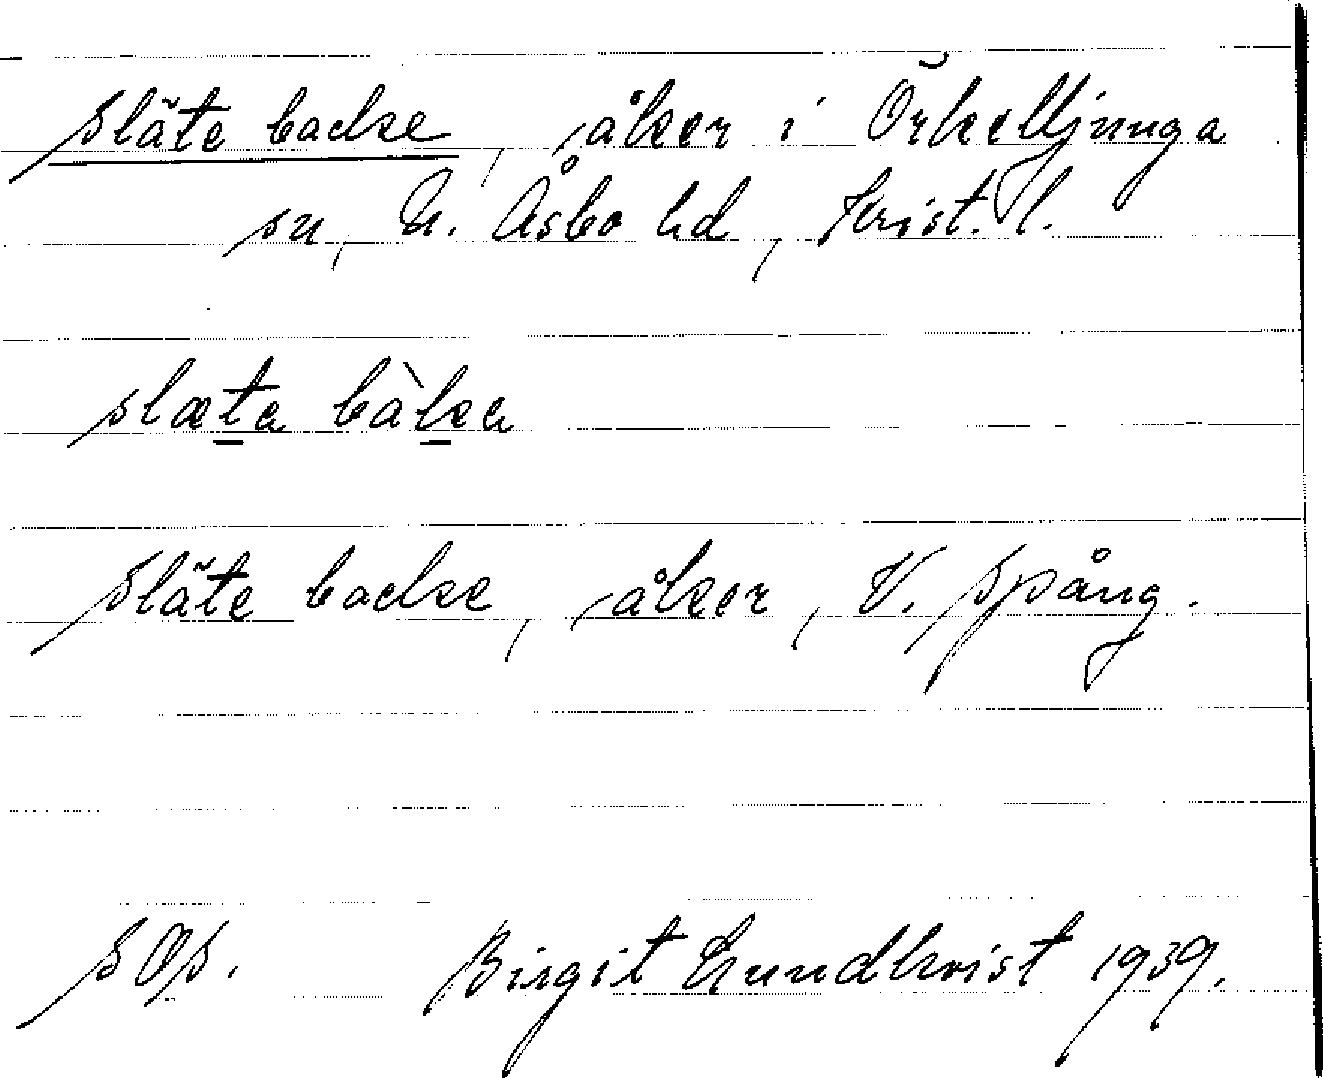 Släte backe, åker i Örkelljunga
sn, N. Åsbo hd, Krist. l.
slæta bàka
Släte backe, åker, V. Spång.
Birgit Lundkvist 1939.